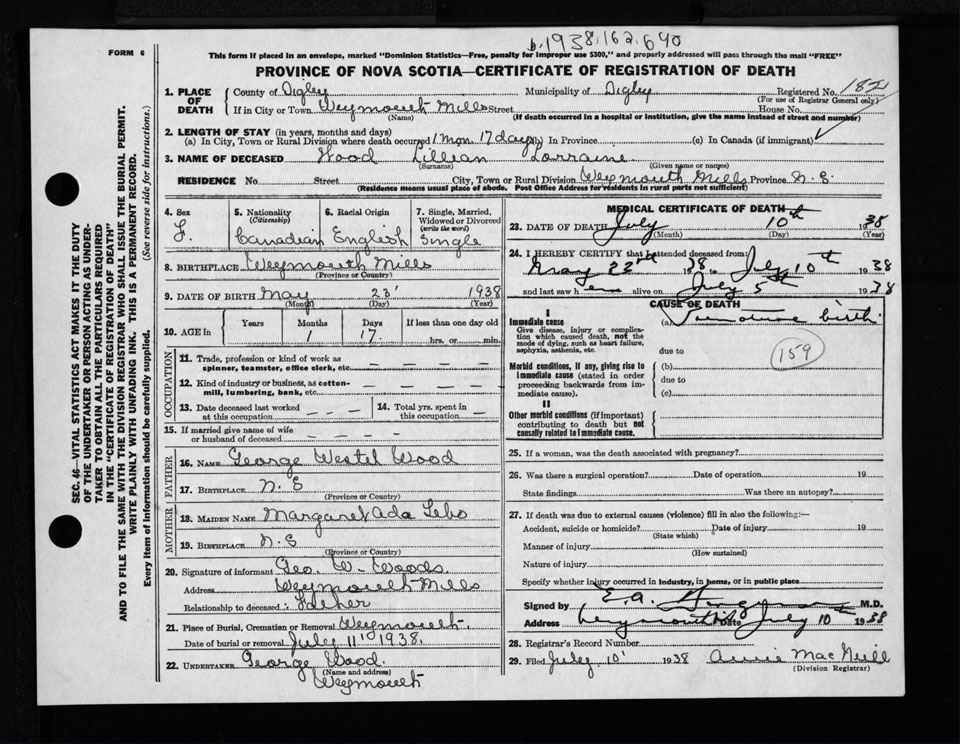 1938.162.640
FORM 6
This form if placed in an envelope, marked "Dominion Statistics—Free, penalty for improper use $300," and properly addressed will pass through the mail "FREE"
PROVINCE OF NOVA SCOTIA—CERTIFICATE OF REGISTRATION OF DEATH
SEC. 46—VITAL STATISTICS ACT MAKES IT THE DUTY
OF THE UNDERTAKER OR PERSON ACTING AS UNDER-
TAKER TO OBTAIN ALL THE PARTICULARS REQUIRED
IN THE "CERTIFICATE OF REGISTRATION OF DEATH"
AND TO FILE THE SAME WITH THE DIVISION REGISTRAR WHO SHALL ISSUE THE BURIAL PERMIT.
WRITE PLAINLY WITH UNFADING INK. THIS IS A PERMANENT RECORD.
Every item of information should be carefully supplied. (See reverse side for instructions.)
1. PLACE OF DEATH County of Digby Municipality of Digby Registered No.
(For use of Registrar General only)
If in City or Town Weymouth Mills Street House No.
(Name) (If death occurred in a hospital or institution, give the name instead of street and number)
2. LENGTH OF STAY (in years, months and days)
(a) In City, Town or Rural Division where death occurred 1 mon 17 days In Province (c) In Canada (if immigrant)
3. NAME OF DECEASED Wood Lillian Lorraine
(Surname) (Given name or names)
RESIDENCE No. Street City, Town or Rural Division Weymouth Mills Province N.S.
(Residence means usual place of abode. Post Office Address for residents in rural parts not sufficient)
4. Sex F.
5. Nationality (Citizenship) Canadian
6. Racial Origin English
7. Single, Married, Widowed or Divorced (write the word) Single
8. BIRTHPLACE Weymouth Mills
(Province or Country)
9. DATE OF BIRTH May 23 1938
(Month) (Day) (Year)
10. AGE in Years Months Days If less than one day old
1 17 hrs. or min.
OCCUPATION
11. Trade, profession or kind of work as
spinner, teamster, office clerk, etc.
12. Kind of industry or business, as cotton-
mill, lumbering, bank, etc.
13. Date deceased last worked
at this occupation
14. Total yrs. spent in
this occupation
15. If married give name of wife
or husband of deceased
FATHER
16. NAME George Westel Wood
17. BIRTHPLACE N.S
(Province or Country)
MOTHER
18. MAIDEN NAME Margaret Ada
19. BIRTHPLACE N.S
(Province or Country)
20. Signature of informant Geo. W. Woods
Address Weymouth Mills
Relationship to deceased Father
21. Place of Burial, Cremation or Removal Weymouth.
Date of burial or removal July 11 1938.
22. UNDERTAKER George Wood
(Name and address)
Weymouth
MEDICAL CERTIFICATE OF DEATH
23. DATE OF DEATH July 10th 1938
(Month) (Day) (Year)
24. I HEREBY CERTIFY that I attended deceased from:
May 22nd 1938 to July 10th 1938
and last saw her alive on July 5th 1938
CAUSE OF DEATH
I
Immediate cause
Give disease, injury or complica-
tion which caused death, not the
mode of dying, such as heart failure,
asphyxia, asthenia, etc.
(a) Premature birth
due to
159
Morbid conditions, if any, giving rise to
immediate cause (stated in order
proceeding backwards from im-
mediate cause).
(b)
due to
(c)
II
Other morbid conditions (if important)
contributing to death but not
causally related to immediate cause.
25. If a woman, was the death associated with pregnancy?
26. Was there a surgical operation? Date of operation 19
State findings Was there an autopsy?
27. If death was due to external causes (violence) fill in also the following:—
Accident, suicide or homicide? Date of injury 19
(State which)
Manner of injury
(How sustained)
Nature of injury
Specify whether injury occurred in industry, in home, or in public place
Signed by E.A. M.D.
Address Weymouth Date July 10 1938
28. Registrar's Record Number
29. Filed July 10 1938 Annie MacNeill
(Division Registrar)